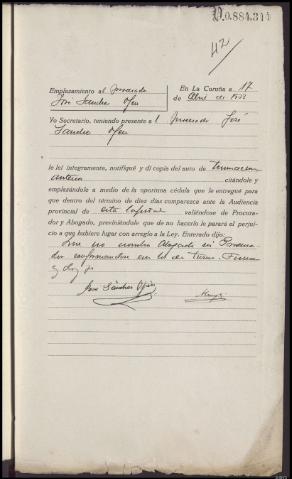 D0.884.3
42
Emplazamiento al procesado
José Sanchez
En La Coruña a 17
de Abril de 1922
Yo Secretario, teniendo presente a l procesado José
Sanchez
le leí íntegramente, notifiqué y dí copia del auto de
anterior citándole y
emplazándole a medio de la oportuna cédula que le entregué para
que dentro del término de diez días comparezca ante la Audiencia
provincial de esta Capital valiéndose de Procura-
dor y Abogado, previniéndole que de no hacerlo le parará el perjui-
cio a que hubiere lugar con arreglo a la Ley. Enterado dijo:
Que no nombra Abogado ni Procura-
dor conformandose con los de turno. Firma
y doy fe
José Sánchez